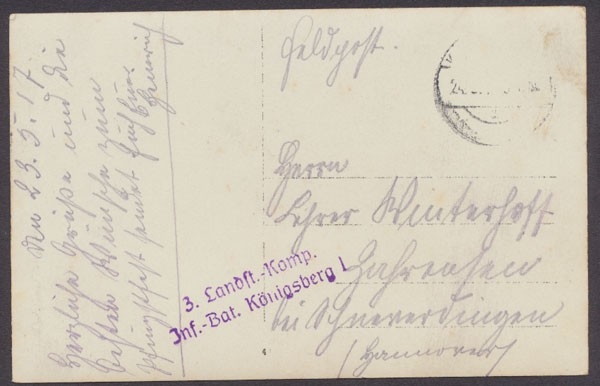 Feldpost.
Herrn
Lehrer Winterhoff
Zahrensen
bei Schneverdingen
(Hannover)
3. Landst.-Komp.
Inf.-Bat. Königsberg I
Den 23.5.17.
Herzliche Grüße und die
besten Wünsche zum
Pfingstfest sendet Euch Euer
Heinrich